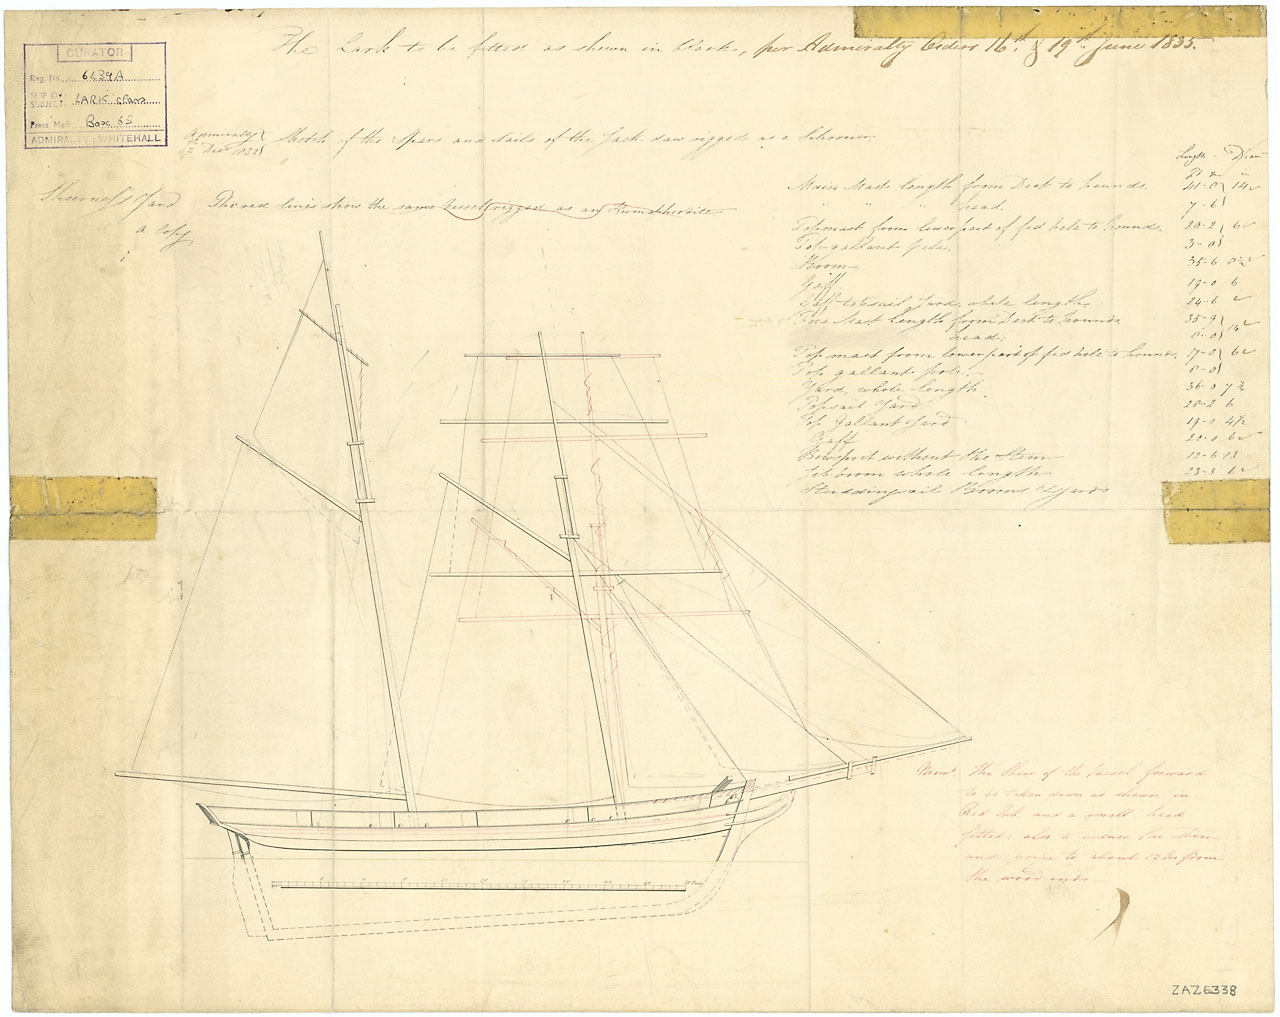 The Lark to be fitted as shewn in black, per Admiralty Orders 16th & 19th June 1835.
CURATOR
Reg. No. 6639A
SHIP OR SUBJECT LARK spars
Press Mark Box 65
ADMIRALTY WHITEHALL
Admiralty
Decr 1832
Sketch of the Spars and Sails of the Jackdaw rigged as a Schooner.
Sheerness Yard
a Copy
The red lines show the same Vessel rigged as an Hermaphrodite
Length Diamr
Ft in in
Main Mast length from Deck to hounds. 41-0 14
" " " head. 7-6
Topmast from lower part of fid hole to hounds. 20-2 6
Top-gallant pole. 3-0
Boom 35-6
Gaff 19-0 6
Gaff-topsail Yard, whole length 24-6
Fore Mast length from Deck to hounds 35-9 14
head: 8-0
Top mast from lower part of fid hole to hounds. 17-0 6
Top gallant pole 8-0
Yard, whole length 36-0 7½
Topsail Yard 28-2 6
Top Gallant Yard 19-0 4½
Gaff 20-0 6
Bowsprit without the Stem 12-6 13
Jib boom whole length 23-3 6
Studdingsail Booms & yards
Memo. The Sheer of the Vessel forward
to be taken down as shewn in
Red Ink and a small head
fitted: also to reduce the stem
and to about 12 In from
the wood ends
50 Feet
ZAZ6338